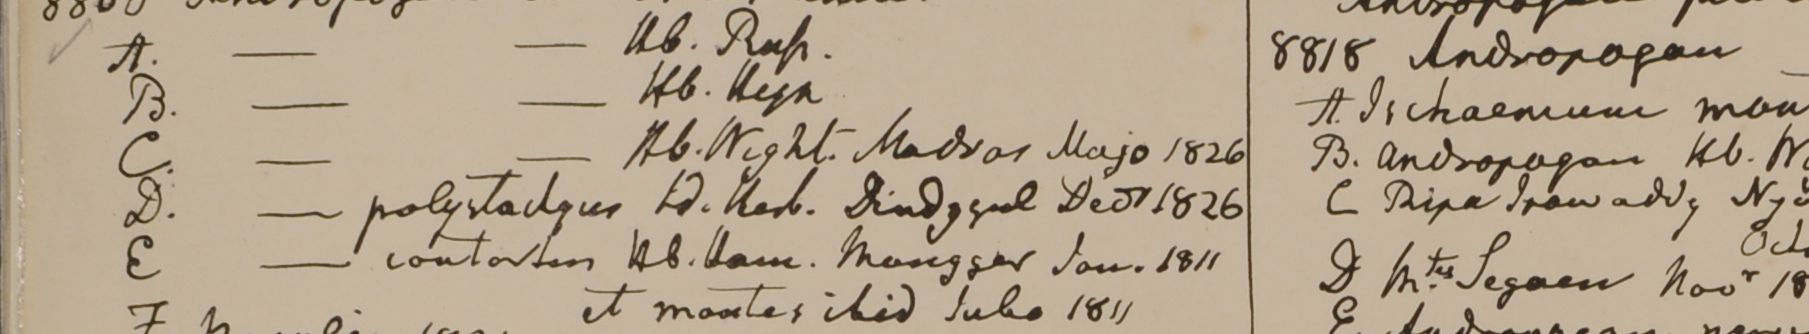 A. — — Hb. Russ.
B. — — Hb. Heyn
C. — — Hb. Wight. Madras Majo 1826
D. — polystachyus Id. Herb. Dindygul Decr 1826
E — contortus Hb. Ham. Mongger Jan. 1811
et montes ibid Julio 1811
F
8818 Andropogon
A. Ischaemum
B. Andropogon Hb.
C Ripa Irawaddy
D Mtes Segaen Novr 18
E. Andropogon